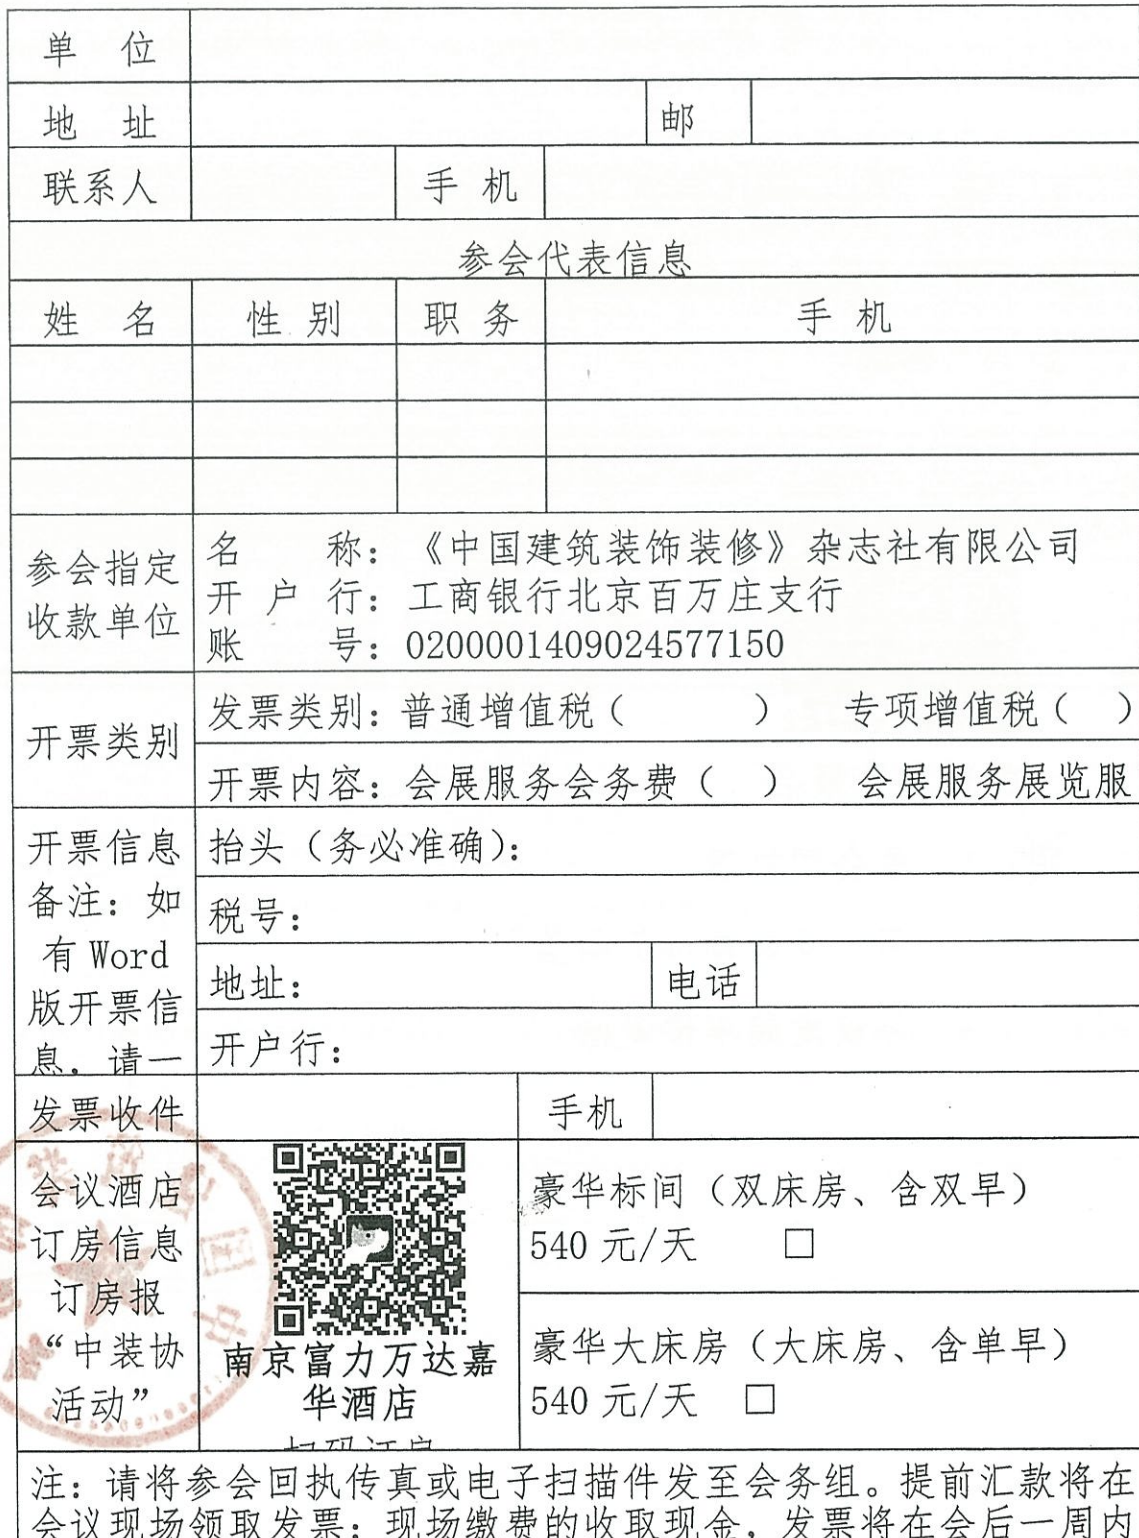 单 位
地 址 邮
联系人 手 机
参会代表信息
姓 名 性 别 职 务 手 机
参会指定
收款单位
名 称：《中国建筑装饰装修》杂志社有限公司
开 户 行：工商银行北京百万庄支行
账 号：0200001409024577150
开票类别
发票类别：普通增值税（ ） 专项增值税（ ）
开票内容：会展服务会务费（ ） 会展服务展览服
开票信息
备注：如
有 Word
版开票信
息，请一
抬头（务必准确）：
税号：
地址： 电话
开户行：
发票收件 手机
会议酒店
订房信息
订房报
“中装协
活动”
南京富力万达嘉
华酒店
扫码订房
豪华标间（双床房、含双早）
540 元/天 □
豪华大床房（大床房、含单早）
540 元/天 □
注：请将参会回执传真或电子扫描件发至会务组。提前汇款将在
会议现场领取发票；现场缴费的收取现金，发票将在会后一周内